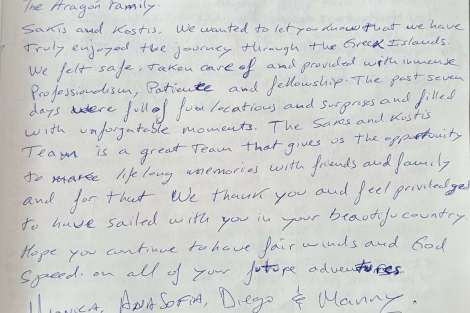 The Aragon Family.
Sakis and Kostis. We wanted to let you know that we have
truly enjoyed the journey through the Greek Islands.
We felt safe, taken care of and provided with immense
Professionalism, Patience and fellowship. The past seven
days were full of fun locations and surprises and filled
with unforgatable moments. The Sakis and Kostis
Team is a great Team that gives us the opportunity
to make life long memories with friends and family
and for that We thank you and feel priviledged
to have sailed with you in your beautiful country
Hope you continue to have fair winds and God
Speed. on all of your future adventures
ANA SOFIA, Diego & Manny.